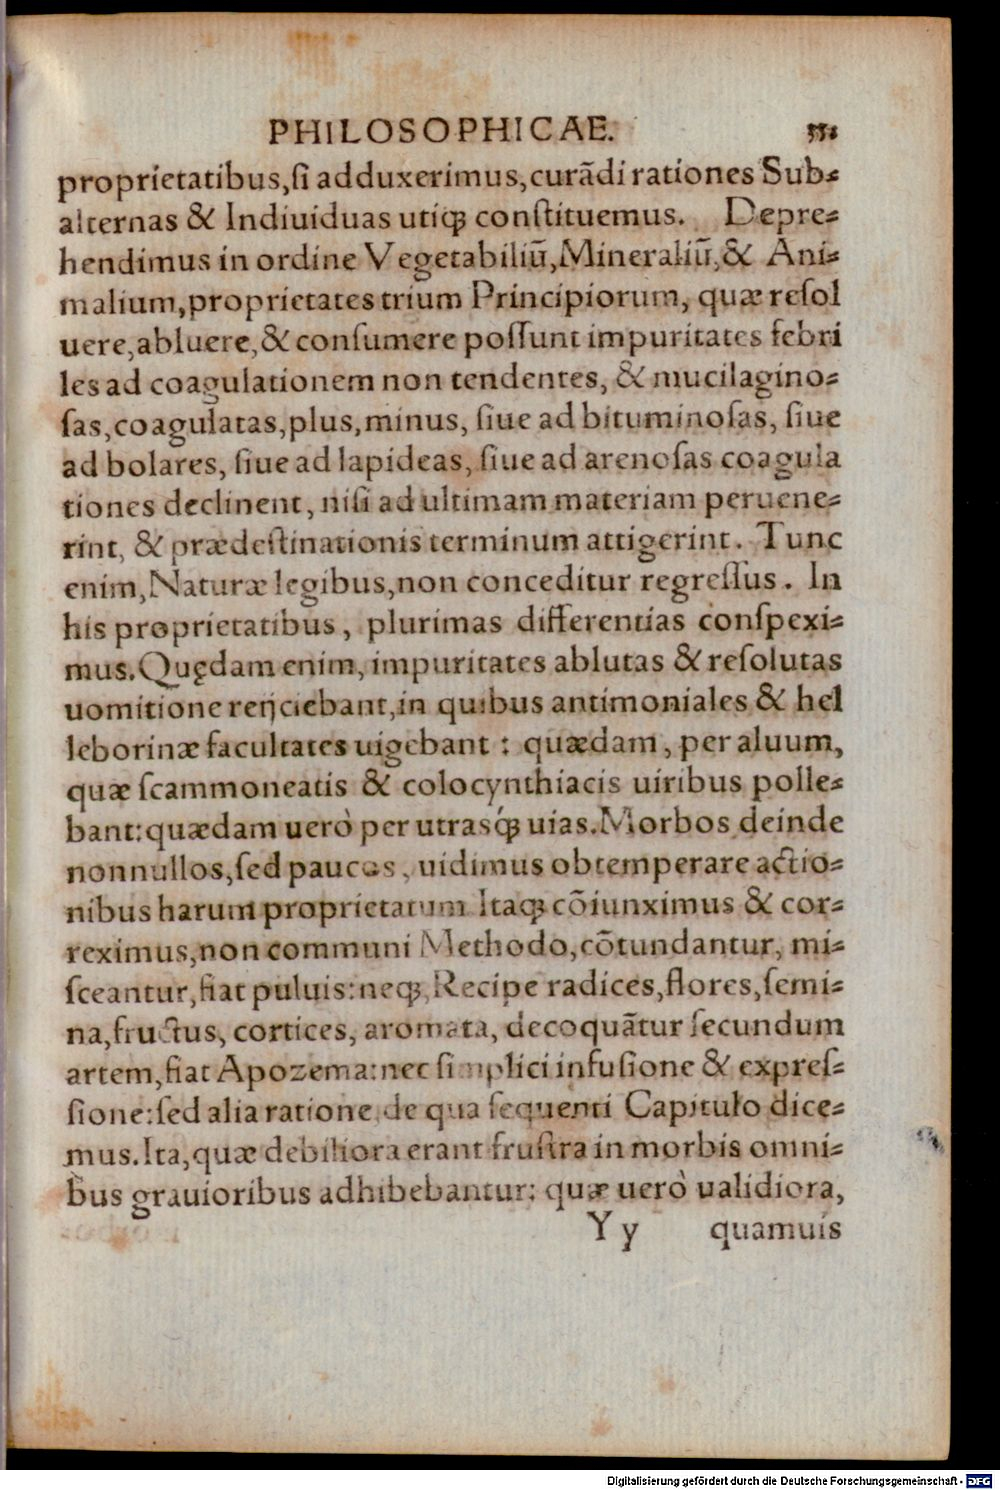 PHILOSOPHICAE. 351
proprietatibus,ſi adduxerimus,curãdi rationes Sub=
alternas & Indiuiduas utiq; conſtituemus. Depre=
hendimus in ordine Vegetabiliũ,Mineraliũ,& Ani=
malium,proprietates trium Principiorum, quæ reſol
uere,abluere,& conſumere poſſunt impuritates febri
les ad coagulationem non tendentes, & mucilagino=
ſas,coagulatas,plus,minus, ſiue ad bituminoſas, ſiue
ad bolares, ſiue ad lapideas, ſiue ad arenoſas coagula
tiones declinent, niſi ad ultimam materiam peruene=
rint, & prædeſtinationis terminum attigerint. Tunc
enim,Naturæ legibus,non conceditur regreſſus. In
his proprietatibus, plurimas differentias conſpexi=
mus.Quędam enim, impuritates ablutas & reſolutas
uomitione reijciebant,in quibus antimoniales & hel
leborinæ facultates uigebant : quædam, per aluum,
quæ ſcammoneatis & colocynthiacis uiribus polle=
bant:quædam uerò per utrasq́; uias.Morbos deinde
nonnullos,ſed paucos, uidimus obtemperare actio=
nibus harum proprietatum Itaq; cõiunximus & cor=
reximus,non communi Methodo,cõtundantur, mi=
ſceantur,fiat puluis:neq; Recipe radices,flores,ſemi=
na,fructus, cortices, aromata, decoquãtur ſecundum
artem,fiat Apozema:nec ſimplici infuſione & expreſ=
ſione:ſed alia ratione de qua ſequenti Capitulo dice=
mus.Ita,quæ debiliora erant fruſtra in morbis omni=
bus grauioribus adhibebantur: quæ uerò ualidiora,
Yy quamuis
Digitalisierung gefördert durch die Deutsche Forschungsgemeinschaft - DFG